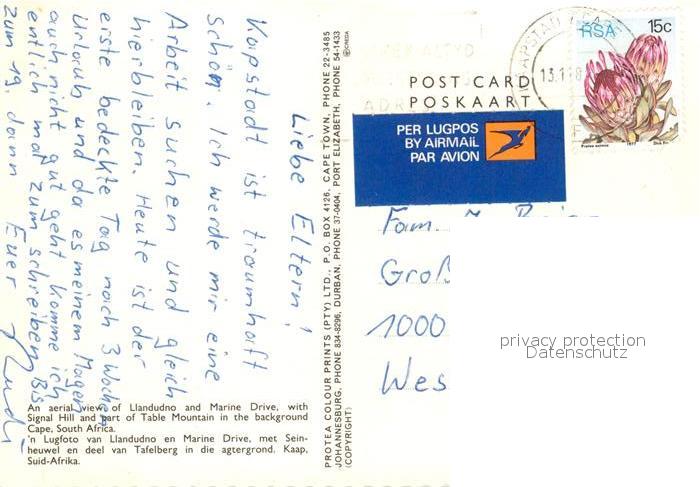 Liebe Eltern!
Kapstadt ist traumhaft
schön. Ich werde mir eine
Arbeit suchen und gleich
hierbleiben. Heute ist der
erste bedeckte Tag nach 3 Wochen
Urlaub und da es meinem Magen
auch nicht gut geht komme ich
endlich mal zum schreiben. Bis
zum 19. dann Euer Rudi
An aerial view of Llandudno and Marine Drive, with
Signal Hill and part of Table Mountain in the background
Cape, South Africa.
'n Lugfoto van Llandudno en Marine Drive, met Sein-
heuwel en deel van Tafelberg in die agtergrond. Kaap,
Suid-Afrika.
PROTEA COLOUR PRINTS (PTY) LTD., P.O. BOX 4126, CAPE TOWN, PHONE 22-3485
JOHANNESBURG, PHONE 834-8296, DURBAN, PHONE 37-0404, PORT ELIZABETH, PHONE 54-1433
(COPYRIGHT)
©CREDA
POST CARD
POSKAART
PER LUGPOS
BY AIRMAIL
PAR AVION
RSA 15c
1977
KAPSTAD
Fam.
Groß
1000
Wes
privacy protection
Datenschutz